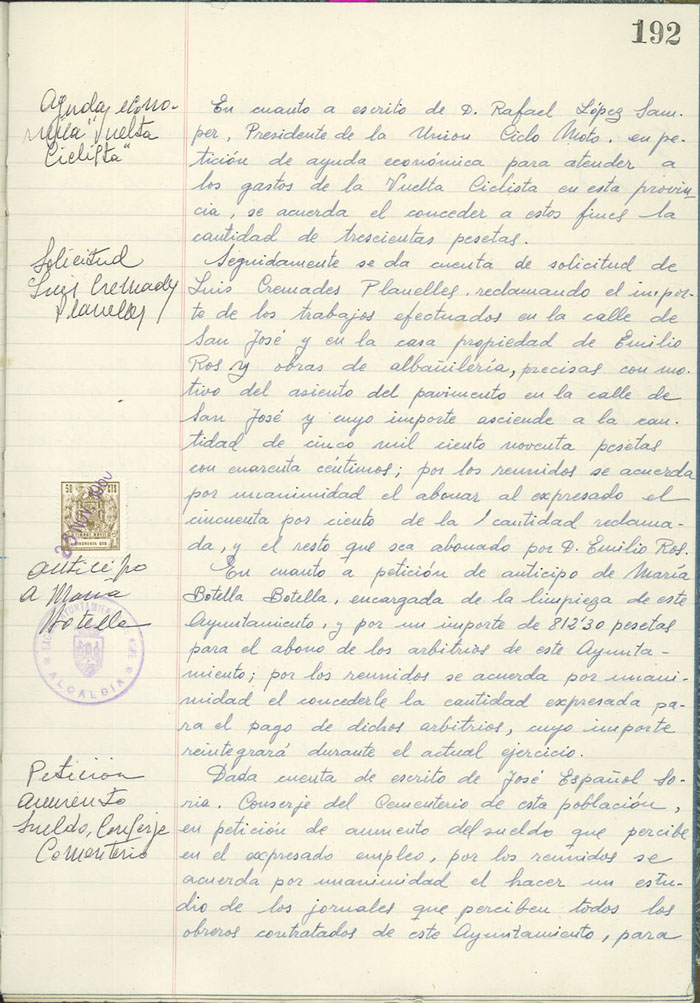 192
Ayuda econo-
mica "Vuelta
Ciclista"
En cuanto a escrito de D. Rafael López Sam-
per, Presidente de la Union Ciclo Moto. en pe-
tición de ayuda económica para atender a
los gastos de la Vuelta Ciclista en esta provin-
cia, se acuerda el conceder a estos fines la
cantidad de trescientas pesetas.
Solicitud
Luis Cremades
Planelles
Seguidamente se da cuenta de solicitud de
Luis Cremades Planelles. reclamando el impor-
te de los trabajos efectuados en la calle de
San José y en la casa propiedad de Emilio
Ros y obras de albañilería, precisas con mo-
tivo del asiento del pavimento en la calle de
San José y cuyo importe asciende a la can-
tidad de cinco mil ciento noventa pesetas
con cuarenta céntimos; por los reunidos se acuerda
por unanimidad el abonar al expresado el
cincuenta por ciento de la cantidad reclama-
da, y el resto que sea abonado por D. Emilio Ros.
50 CTS
anticipo
A María
Botella
ALCALDIA
En cuanto a petición de anticipo de María
Botella Botella, encargada de la limpieza de este
Ayuntamiento, y por un importe de 812'30 pesetas
para el abono de los arbitrios de este Ayunta-
miento; por los reunidos se acuerda por unani-
midad el concederle la cantidad expresada pa-
ra el pago de dichos arbitrios, cuyo importe
reintegrará durante el actual ejercicio.
Petición
aumento
Sueldo, Conserje
Cementerio
Dada cuenta de escrito de José Español So-
ria. Conserje del Cementerio de esta población,
en petición de aumento del sueldo que percibe
en el expresado empleo, por los reunidos se
acuerda por unanimidad el hacer un estu-
dio de los jornales que perciben todos los
obreros contratados de este Ayuntamiento, para